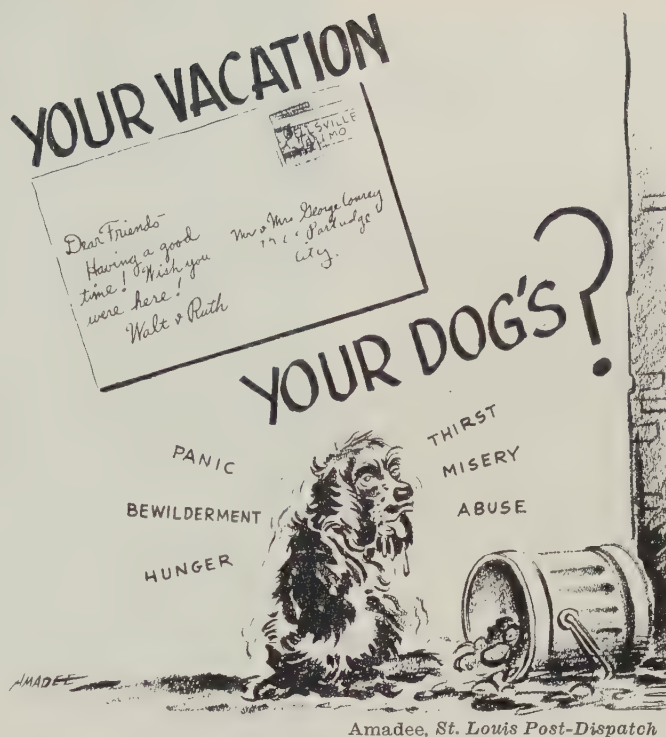 YOUR VACATION
MO
Dear Friends-
Having a good
time! Wish you
were here!
Walt & Ruth
Mr & Mrs George
Partridge
City.
YOUR DOG'S?
PANIC
BEWILDERMENT
HUNGER
THIRST
MISERY
ABUSE
AMADEE
Amadee, St. Louis Post-Dispatch